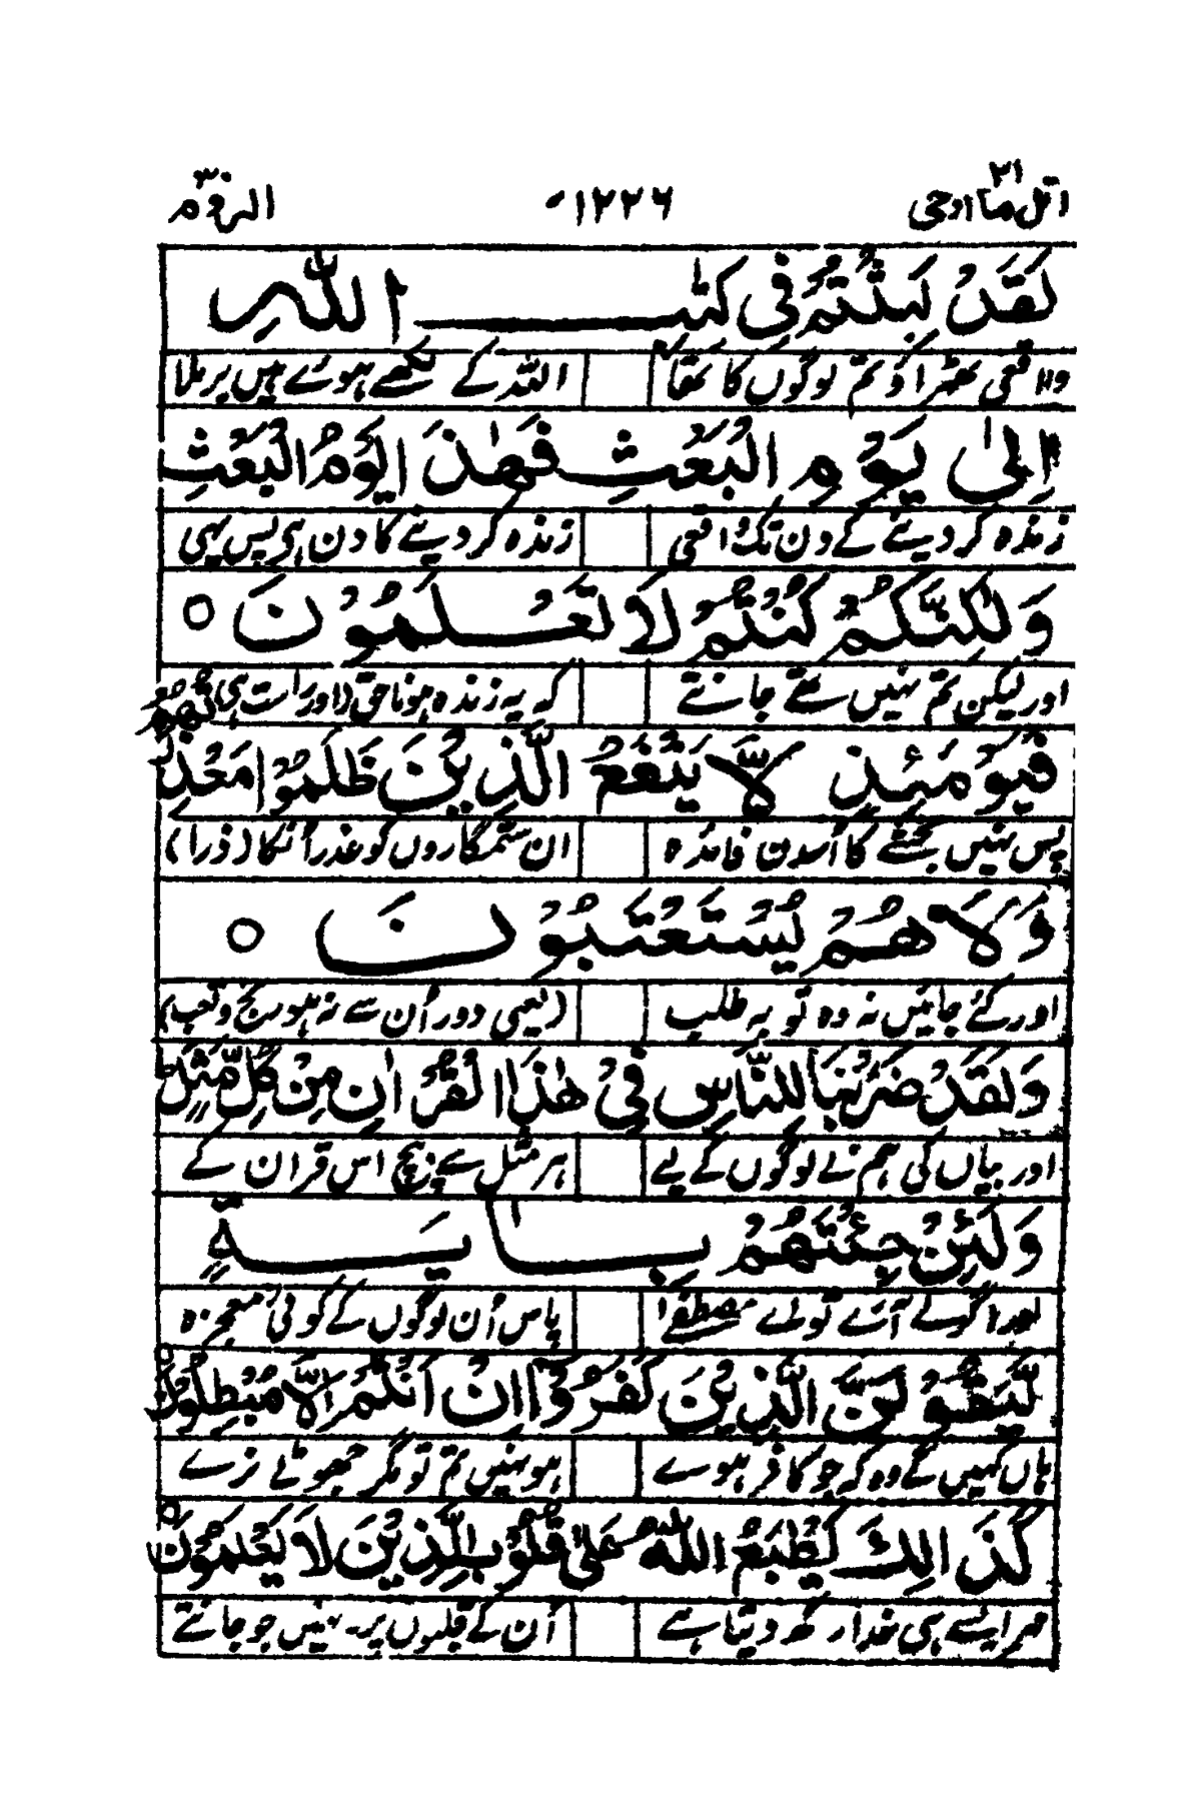 اتل ما اوحی ۲۱ ۱۲۲۶ الروم ۳۰
لَقَدْ لَبِثْتُمْ فِی کِتٰبِ اللّٰهِ
واقعی ٹھہراؤ تم لوگوں کا تھا اللہ کے لکھے ہوئے میں برملا
اِلٰی یَوْمِ الْبَعْثِ فَهٰذَا یَوْمُ الْبَعْثِ
زندہ کر دینے کے دن تک واقعی زندہ کر دینے کا دن ہے بس یہی
وَلٰکِنَّکُمْ کُنْتُمْ لَا تَعْلَمُوْنَ ○
اور لیکن تم نہیں تھے جانتے کہ یہ زندہ ہونا حق (اور راست ہی)
فَیَوْمَئِذٍ لَّا یَنْفَعُ الَّذِیْنَ ظَلَمُوْا مَعْذِرَتُهُمْ
پس نہیں بخشے گا اُس دن فائدہ ان ستمگاروں کو عذر اُنکا (ذرا)
وَلَا هُمْ یُسْتَعْتَبُوْنَ ○
اور کئے جائیں نہ وہ توبہ طلب (یعنی دور اُن سے نہ ہو رنج و تعب)
وَلَقَدْ ضَرَبْنَا لِلنَّاسِ فِیْ هٰذَا الْقُرْاٰنِ مِنْ کُلِّ مَثَلٍ ط
اور بیاں کی ہم نے لوگوں کے لیے ہر مثل سے بیچ اس قرآن کے
وَلَئِنْ جِئْتَهُمْ بِاٰیَةٍ
اور اگر لے آئے تو اے مصطفےٰ پاس اُن لوگوں کے کوئی معجزہ
لَّیَقُوْلَنَّ الَّذِیْنَ کَفَرُوْٓا اِنْ اَنْتُمْ اِلَّا مُبْطِلُوْنَ ○
ہاں کہیں گے وہ کہ جو کافر ہوے ہو نہیں تم تو مگر جھوٹے نرے
کَذَالِكَ یَطْبَعُ اللّٰهُ عَلٰی قُلُوْبِ الَّذِیْنَ لَا یَعْلَمُوْنَ ○
مہر ایسے ہی خدا رکھ دیتا ہے اُن کے قلبوں پر۔ نہیں جو جانتے